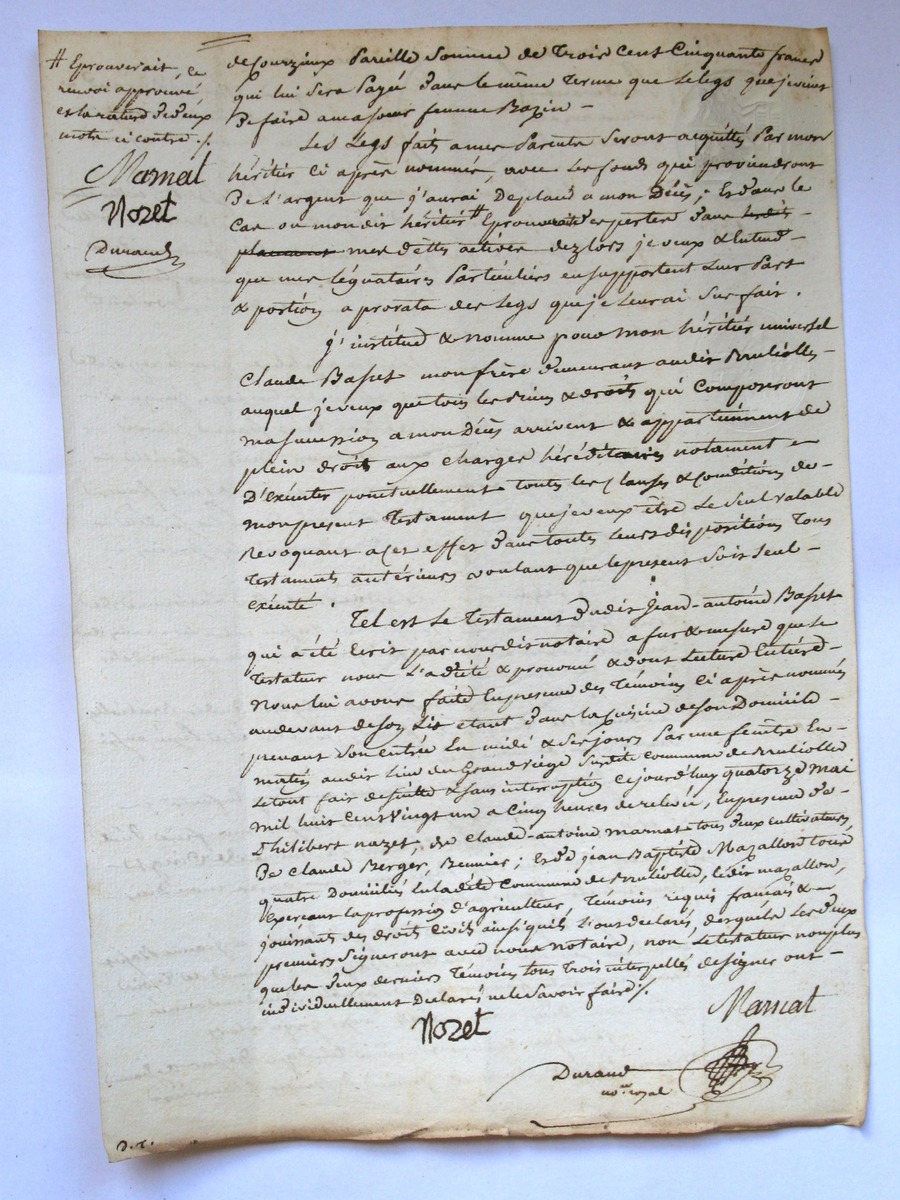 # Eprouverait, ce
renvoi approuvé,
est la rature de deux
mots ci contre ./.
Marnat
Nozet
Durand
de Sourzieux Pareille Somme de Trois Cent Cinquante francs
qui lui Sera Payé dans le même Terme que le legs que je viens
De faire a ma Sœur femme Bazin –
Les Legs faits a mes Parents Seront acquittés Par mon
héritier Ci après nommé, avec Les fonds qui proviendront
De L'argent que j'aurai De placé a mon Décès; Et dans le
Cas ou mon dit héritier # Eprouverait des pertes dans les dits
placements mes dettes actives dezlors je veux & Entend
que mes légataires Particuliers en supportent Leur Part
& portion a prorata des Legs que je Leur ai Sus fait.
J'institue & nomme pour mon héritier universel
Claude Basset mon frère demeurant audit Brulioles –
auquel je veux que tous les biens & droits qui Composeront
ma succession a mon Décès arrivent & appartiennent de
plein droit aux charges héréditaires notament –
D'exécuter ponctuellement toutes les Clauses & Conditions de –
mon present Testament que je veux être Le Seul valable
Revoquant a cet effet dans toutes leurs dispositions Tous
Testaments antérieurs voulant que le present Soit Seul –
exécuté.
Tel est Le Testament dudit Jean-antoine Basset
qui a été Ecrit par nous dit notaire a fur & mesure que le
Testateur nous L'a dicté & prononcé & dont Lecture Entière
Nous lui avons faite En presence des Témoins Ci après nommés
audevant de son Lit étant dans la Cuisine de son Domicile
prenant Son entrée En midi & Ses jours Par une fenêtre En –
matin audit lieu du Grand riége Susdite Commune de Brulliolle
Le tout fait de suitte & sans interruption Ce jourd'huy quatorze mai
mil huit Cent Vingt un a Cinq heures de relevée, En presence de
Philibert Nazet, de Claude-antoine Marnat tous deux cultivateurs
De Claude Berger, Bennier; Et de jean Baptiste Mazallon tous
quatre Domiciliés En la dite Commune de Brulliolle, ledit mazallon,
Exerçant la profession d'agriculteur, Témoins requis français & –
jouissants des droits Civils ainsi qu'ils L'ont déclaré, desquels Les deux
premiers Signeront avec nous notaire, non Le testateur non plus
que les deux derniers Témoins tous Trois interpellés de signer ont –
individuellement Déclaré ne le Savoir faire ./.
Nozet
Marnat
Durand
no.re royal
D. T.